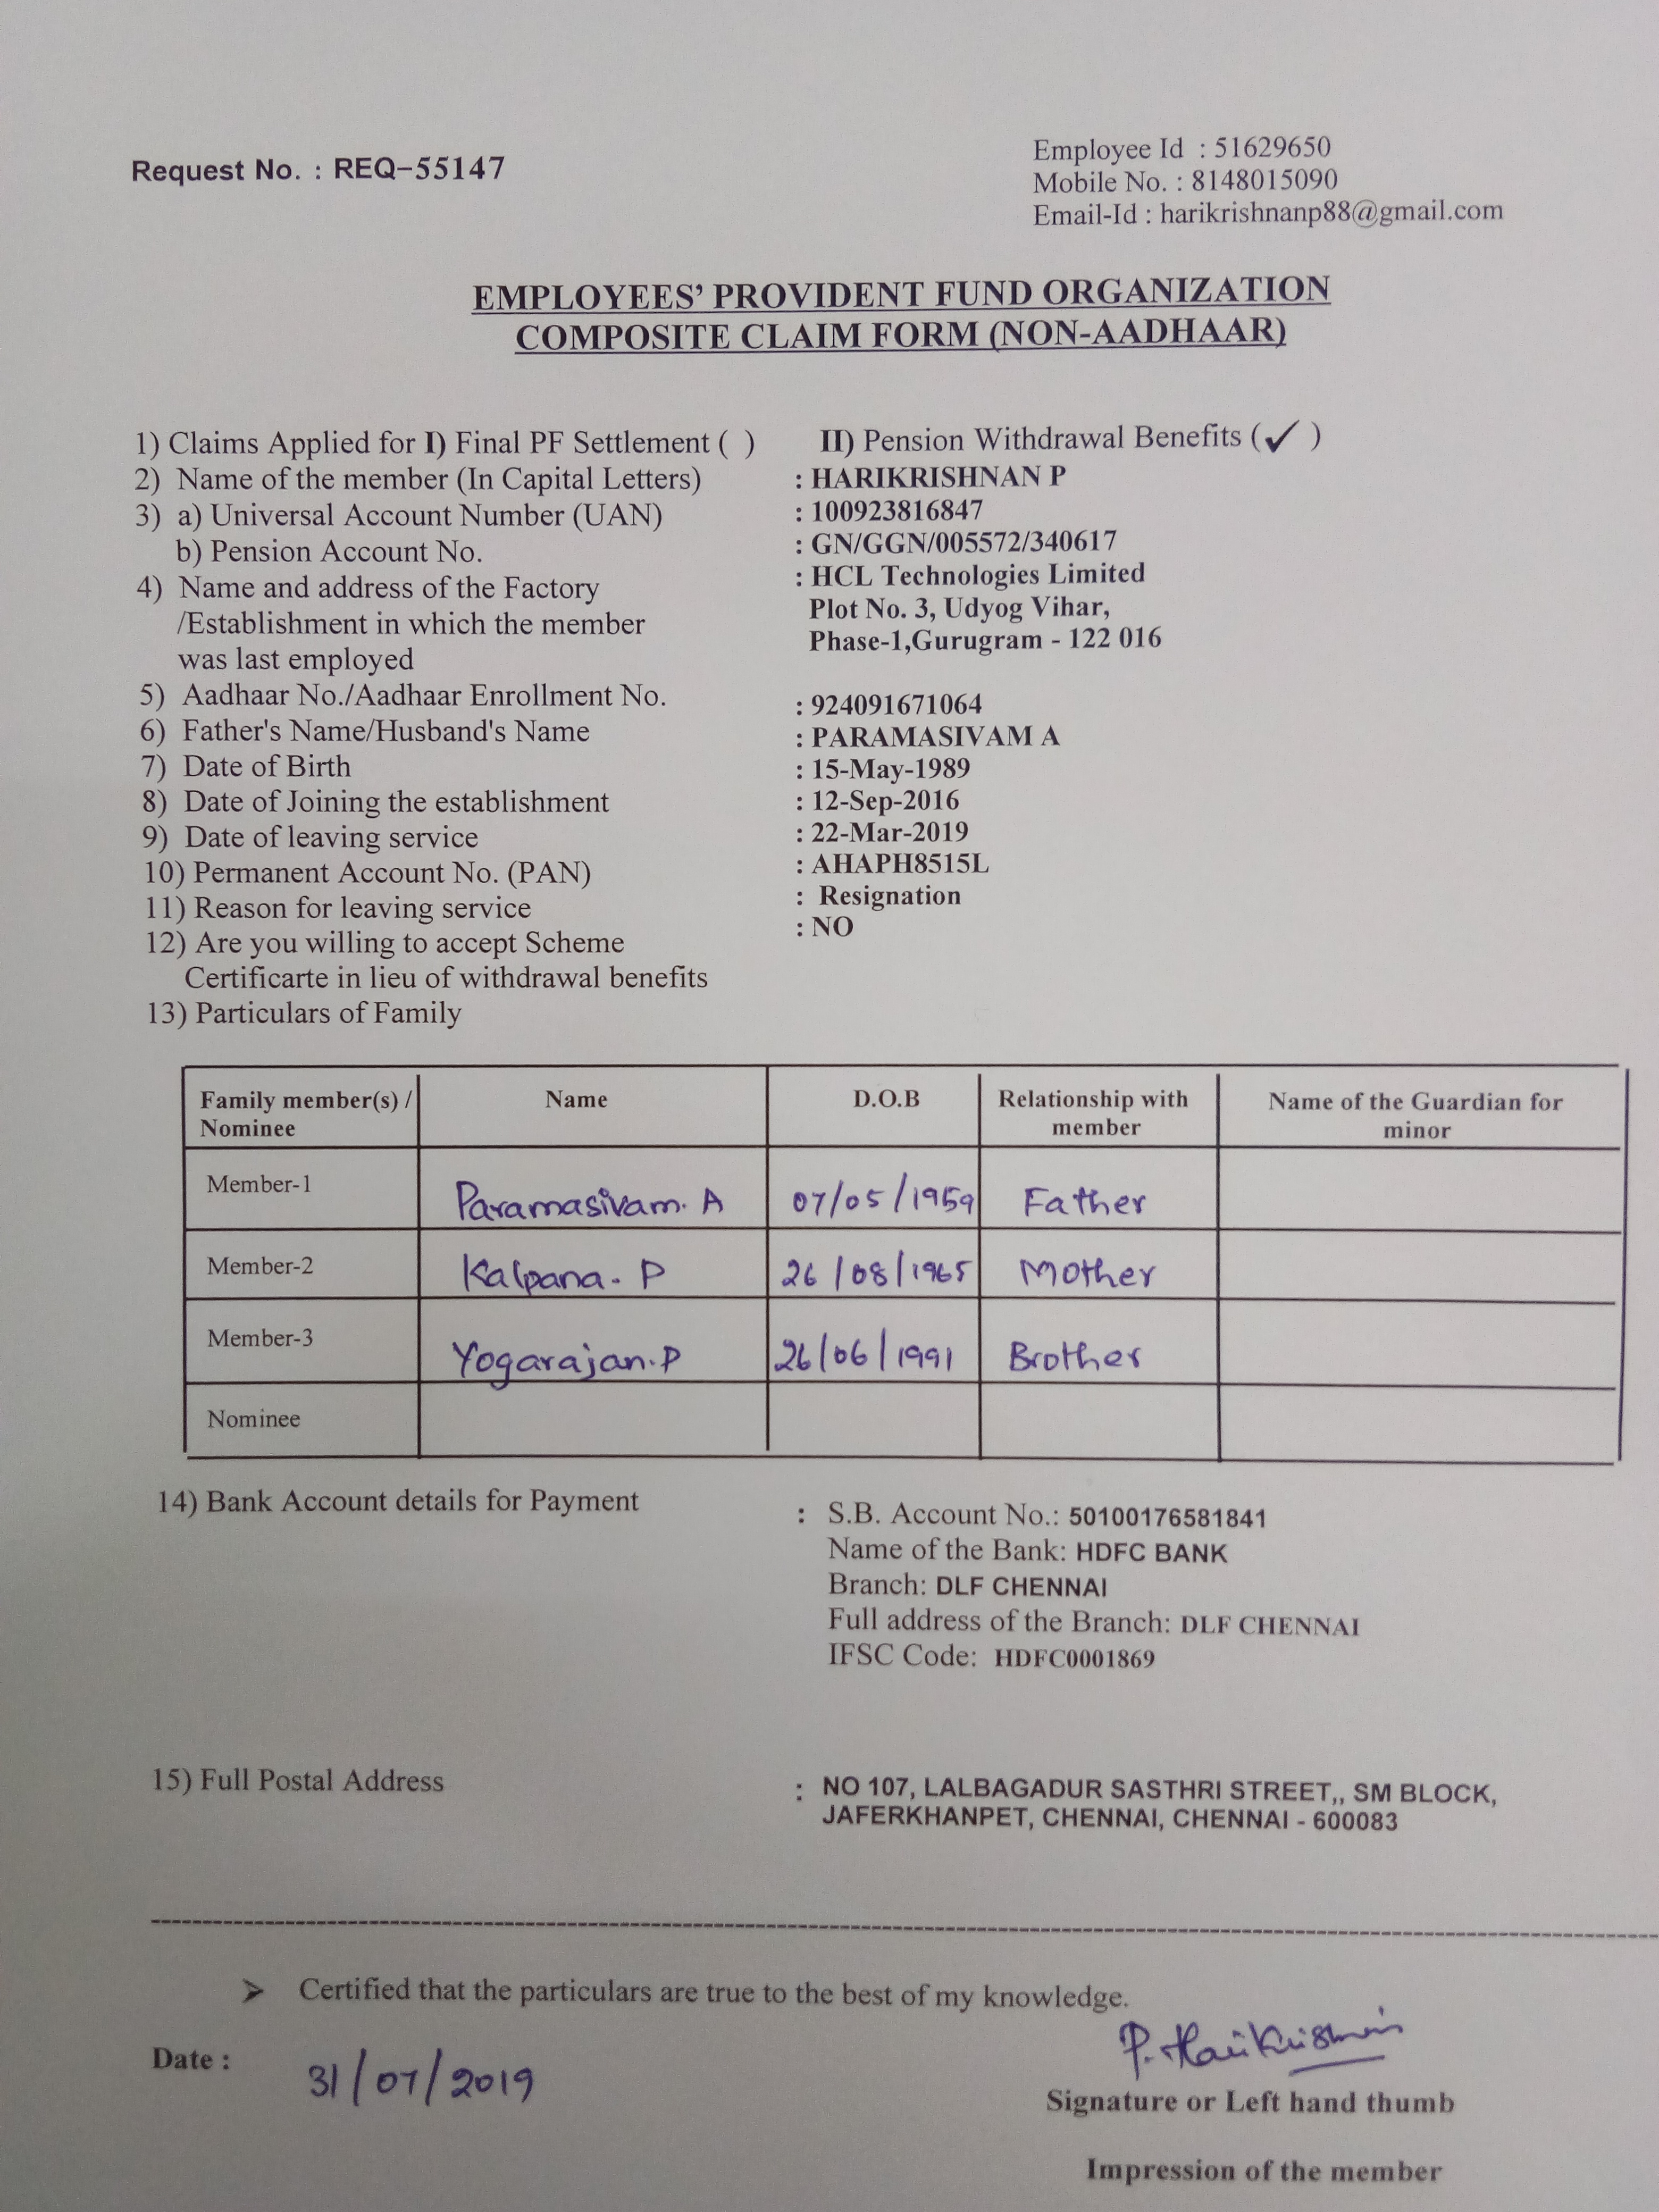 Request No. : REQ-55147
Employee Id : 51629650
Mobile No. : 8148015090
Email-Id : harikrishnanp88@gmail.com
EMPLOYEES' PROVIDENT FUND ORGANIZATION
COMPOSITE CLAIM FORM (NON-AADHAAR)
1) Claims Applied for I) Final PF Settlement ( ) II) Pension Withdrawal Benefits (✓ )
2) Name of the member (In Capital Letters) : HARIKRISHNAN P
3) a) Universal Account Number (UAN) : 100923816847
b) Pension Account No. : GN/GGN/005572/340617
4) Name and address of the Factory : HCL Technologies Limited
/Establishment in which the member Plot No. 3, Udyog Vihar,
was last employed Phase-1,Gurugram - 122 016
5) Aadhaar No./Aadhaar Enrollment No. : 924091671064
6) Father's Name/Husband's Name : PARAMASIVAM A
7) Date of Birth : 15-May-1989
8) Date of Joining the establishment : 12-Sep-2016
9) Date of leaving service : 22-Mar-2019
10) Permanent Account No. (PAN) : AHAPH8515L
11) Reason for leaving service : Resignation
12) Are you willing to accept Scheme : NO
Certificarte in lieu of withdrawal benefits
13) Particulars of Family
Family member(s) / Name D.O.B Relationship with Name of the Guardian for
Nominee member minor
Member-1 Paramasivam. A 07/05/1959 Father
Member-2 Kalpana. P 26/08/1965 Mother
Member-3 Yogarajan.P 26/06/1991 Brother
Nominee
14) Bank Account details for Payment : S.B. Account No.: 50100176581841
Name of the Bank: HDFC BANK
Branch: DLF CHENNAI
Full address of the Branch: DLF CHENNAI
IFSC Code: HDFC0001869
15) Full Postal Address : NO 107, LALBAGADUR SASTHRI STREET,, SM BLOCK,
JAFERKHANPET, CHENNAI, CHENNAI - 600083
➤ Certified that the particulars are true to the best of my knowledge.
P. Harikrishnan
Date : 31/07/2019
Signature or Left hand thumb
Impression of the member